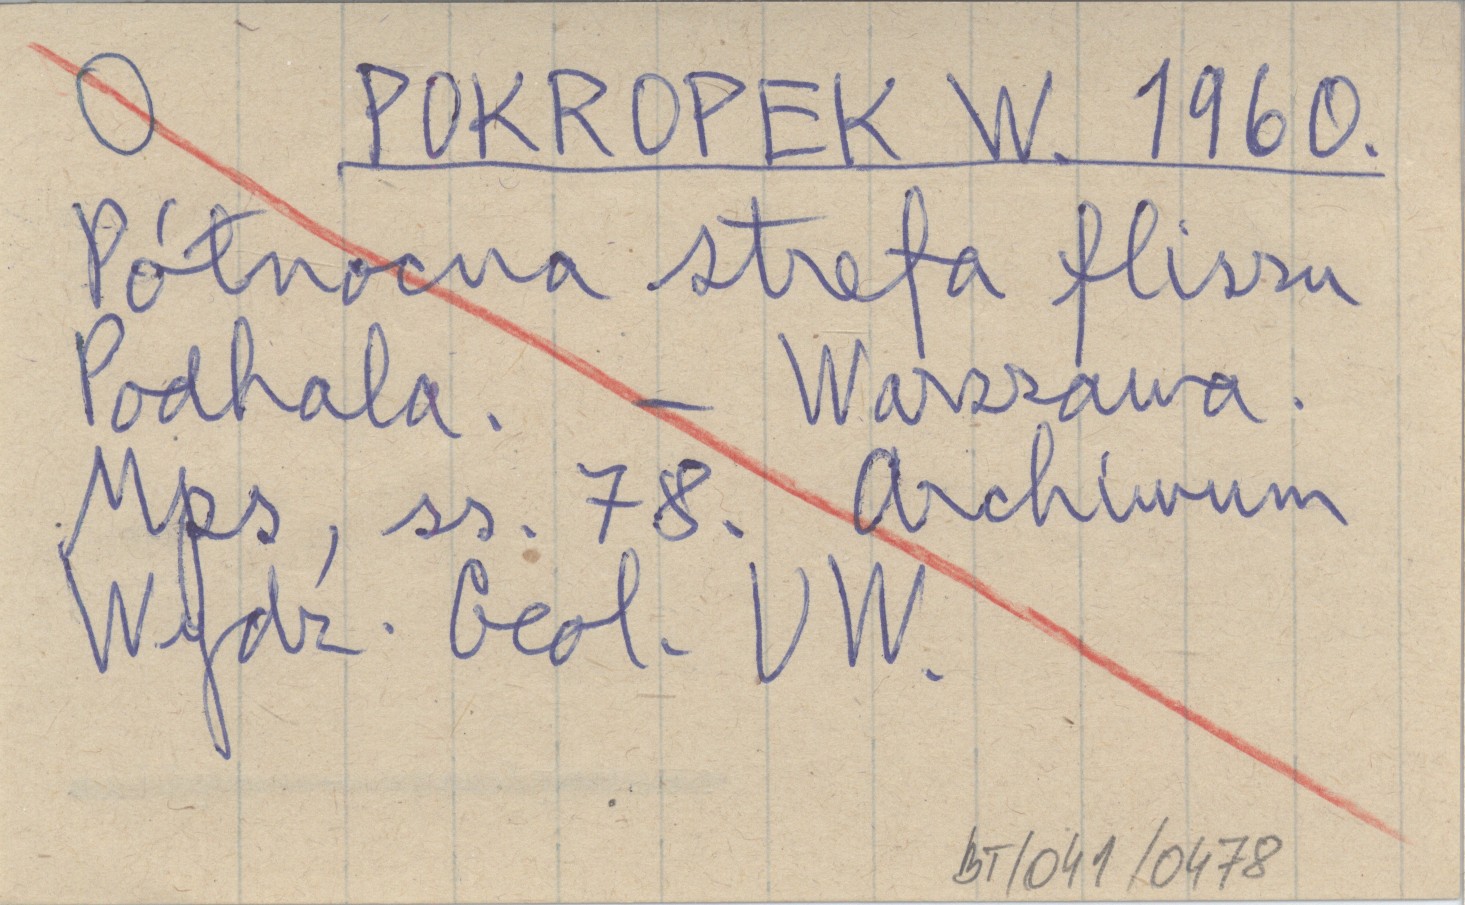 O POKROPEK W. 1960.
Północna strefa fliszu
Podhala. – Warszawa.
Mps, ss. 78. Archiwum
Wydz. Geol. UW.
BT/041/0478